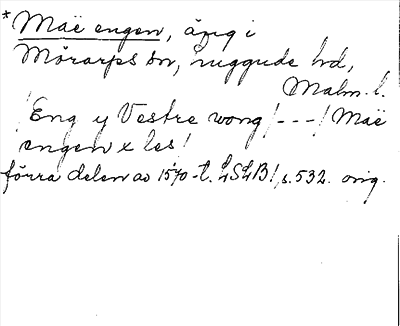 * Maë engen, äng i
Mörarps sn, Luggude hd,
Malm. l.
/Eng y Vestre wong/---/Maë
engen x les/
förra delen av 1570-t. LSLB1, s. 532. orig.